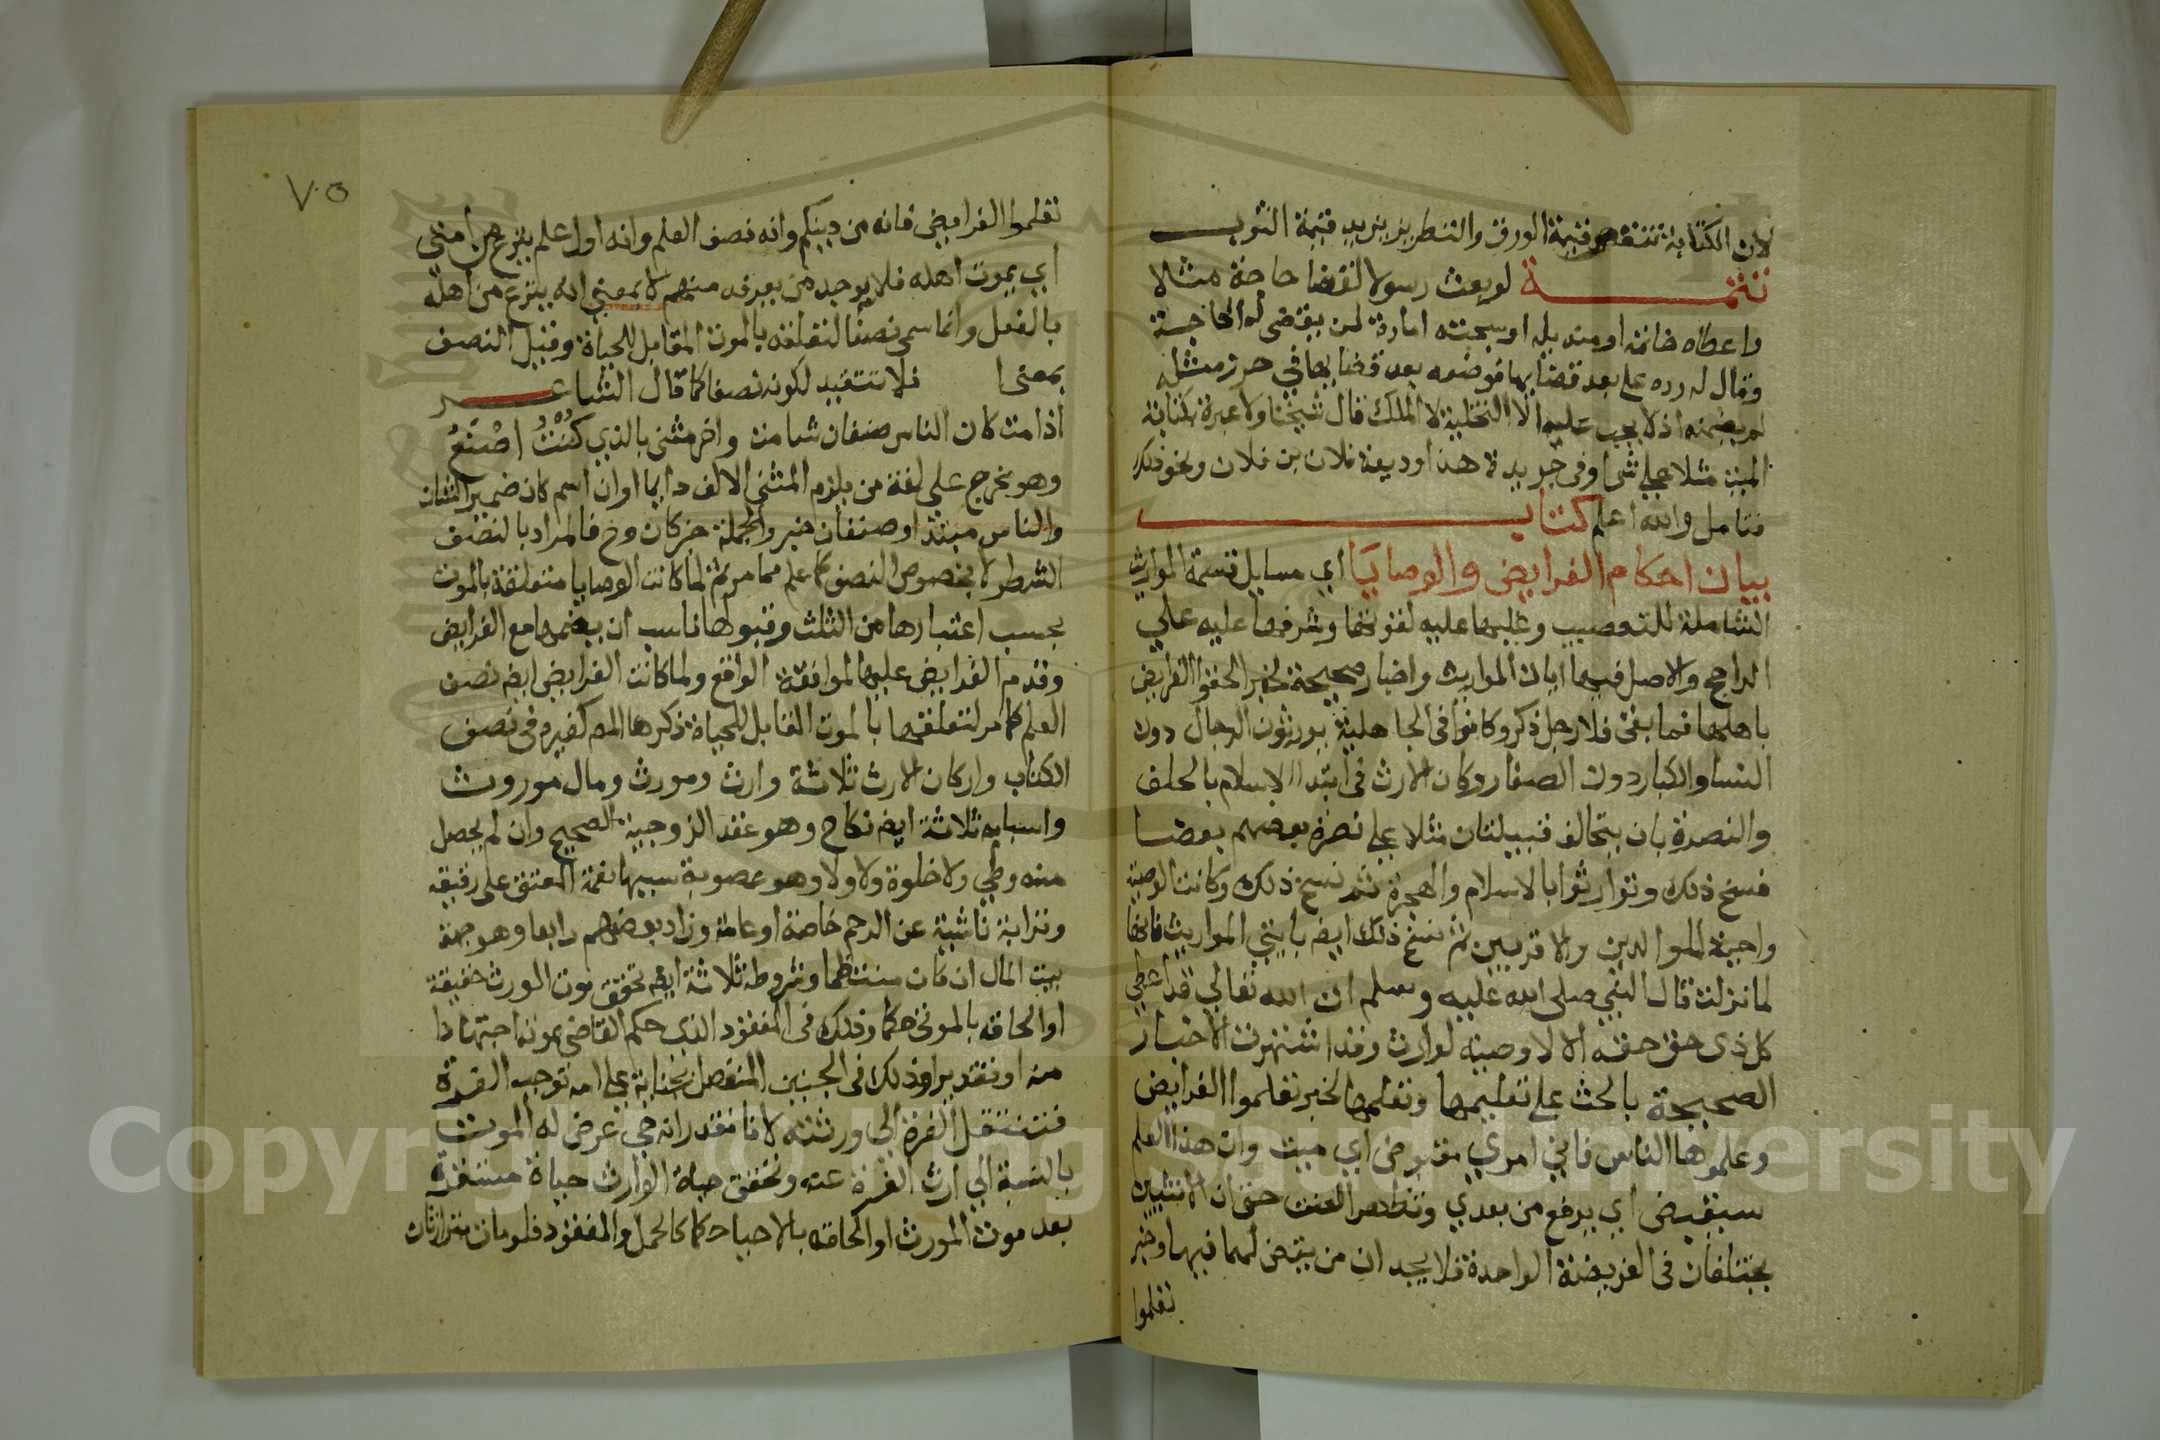 لان الكتابة تنقص قيمة الورق والتطريز يزيد قيمة الثوب
تتمة لو بعث رسولا لقضا حاجة مثلا
واعطاه خاتمه او منديله او سبحته امارة لمن يقضى له الحاجة
وقال له رده على بعد قضايها فوضعه بعد قضايها في حرز مثله
لم يضمنه اذ لا يجب عليه الا التخلية لا الملك قال شيخنا ولا عبرة بكتابة
الميت مثلا على شى او فى جريدة هذا وديعة فلان بن فلان ونحو ذلك
فتامل والله اعلم كتاب
بيان احكام الفرايض والوصايا اي مسايل قسمة المواريث
الشاملة للتعصيب وغلبها عليه لقوتها وشرفها عليه على
الراجح والاصل فيها ايات المواريث واخبار صحيحة لخبر الحقوا الفرايض
باهلها فما بقى فلا رجل ذكر وكانوا فى الجاهلية يورثون الرجال دون
النسا والكبار دون الصغار وكان الارث فى ابتدا الاسلام بالحلف
والنصرة بان يتحالف قبيلتان مثلا على نصرة بعضهم بعضا
فنسخ ذلك وتوارثوا بالاسلام والهجرة ثم نسخ ذلك وكانت الوصية
واجبة للوالدين والاقربين ثم نسخ ذلك ايضا بايتي المواريث فانها
لما نزلت قال النبي صلى الله عليه وسلم ان الله تعالى قد اعطى
كل ذى حق حقه الا لا وصية لوارث وقد اشتهرت الاخبار
الصحيحة بالحث على تعليمها وتعلمها لخبر تعلموا الفرايض
وعلموها الناس فاني امرؤ مقبوض اي ميت وان هذا العلم
سيقبض اي يرفع من بعدي وتظهر الفتن حتى ان الاثنين
يختلفان فى الفريضة الواحدة فلا يجدان من يقض لهما فيها وخبر
تعلموا
٧٠٥
تعلموا الفرايض فانه من دينكم وانه نصف العلم وانه اول علم ينزع من امتي
أي يموت اهله فلا يوجد من يعرفه منهم لا بمعنى انه ينزع من اهله
بالفعل وانما سمى نصفا لتعلقه بالموت المقابل للحياة وقيل النصف
بمعنى ا فلا تتقيد لكونه نصفا كما قال الشاعر
اذا مت كان الناس صنفان شامت واخر مثنى بالذي كُنْتُ اصْنَعُ
وهو يخرج على لغة من يلزم المثنى الالف دايما او ان اسم كان ضمير الشان
والناس مبتدا وصنفان خبر والجملة خبر كان وح فالمراد بالنصف
الشطر لا بخصوص النصف كما علم مما مر ثم لما كانت الوصايا متعلقة بالموت
بحسب اعتبارها من الثلث وقبولها ناسب ان يضمها مع الفرايض
وقدم الفرايض عليها لموافقة الواقع ولما كانت الفرايض ايضا نصف
العلم كما مر لتعلقها بالموت القابل للحياة ذكرها المص كغيره فى نصف
الكتاب واركان الارث ثلاثة وارث ومورث ومال موروث
واسبابه ثلاثة ايضا نكاح وهو عقد الزوجية الصحيح وان لم يحصل
منه وطي ولا خلوة ولا ولا وهو عصوبة سببها نعمة المعتق على رقيقه
وقرابة ناشية عن الرحم خاصة او عامة وزاد بعضهم رابعا وهو جهة
بيت المال ان كان منتظما وشروطه ثلاثة ايضا تحقق موت المورث حقيقة
او الحاقه بالموتى حكما وذلك فى المفقود الذى حكم القاضى بموته اجتهادا
منه او تقديرا وذلك فى الجنين المنفصل بجناية على امه توجب الغرة
فتنتقل الغرة الى ورثته لانا نقدر انه حي عرض له الموت
بالنسبة الى ارث الغرة عنه وتحقق حياة الوارث حياة مستقرة
بعد موت المورث او الحاقه بالاحيا حكما كالحمل والمفقود فلو مات متوارثان
Copyright © King Saud University